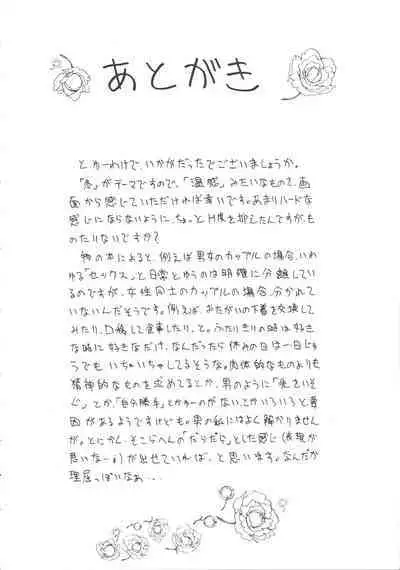 あとがき
と、ゆーわけで、いかがだったでございましょうか。
「恋」がテーマですので、「温感」みたいなもので、画
面から感じていただければ幸いです。あまりハードな
感じにならないように、ちょっとH度を抑えたんですが、も
のたりないですか?
物の本によると、例えば男女のカップルの場合、いわ
ゆる「セックス」と日常とゆうのは明確に分離してい
るのですが、女性同士のカップルの場合、分かれて
いないんだそうです。例えば、おたがいの下着を交換して
みたり、口移しで食事したり、と。ふたりきりの時は好き
な時に好きなだけ、なんだったら休みの日は一日じゅ
うでも いちゃいちゃしてるそうな。肉体的なものよりも
精神的なものを求めてるとか、男のように「先をいそ
ぐ」とか、「自分勝手」とかゆーのがない、とかいろいろと要
因があるようですけども。男の私にはよく解かりません
が。とにかく、そこらへんの「だらだら」とした感じ(表現が
悪いなー)が出せていれば、と思います。なんだか
理屈っぽいなぁ...